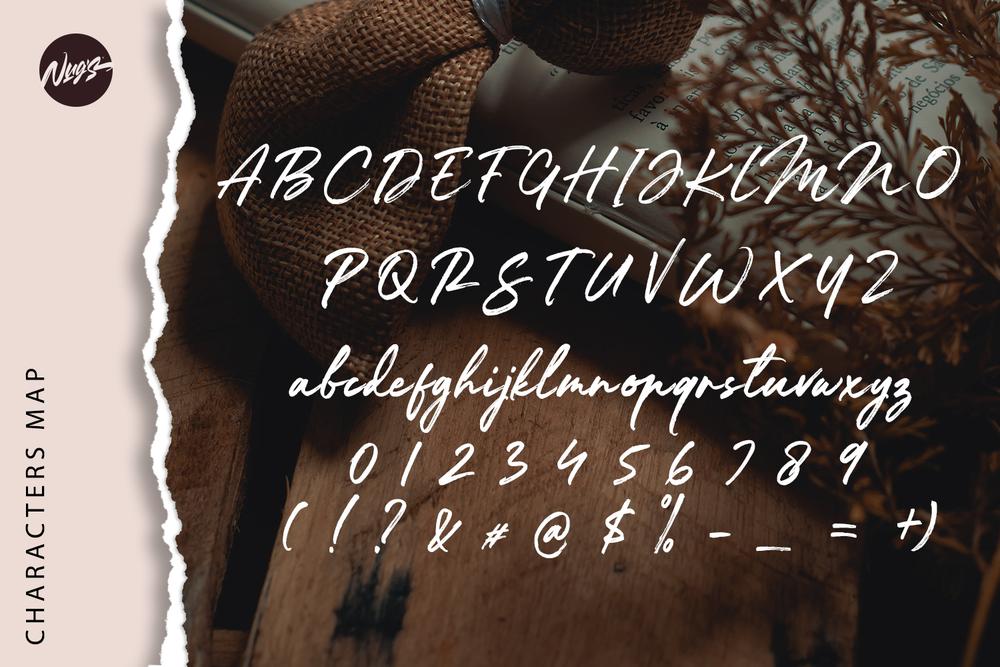 Nug's
CHARACTERS MAP
ABCDEFGHIJKLMNO
PQRSTUVWXYZ
abcdefghijklmnopqrstuvwxyz
0 1 2 3 4 5 6 7 8 9
( ! ? & # @ $ % - _ = +)
favor
à
de Sa
negócios